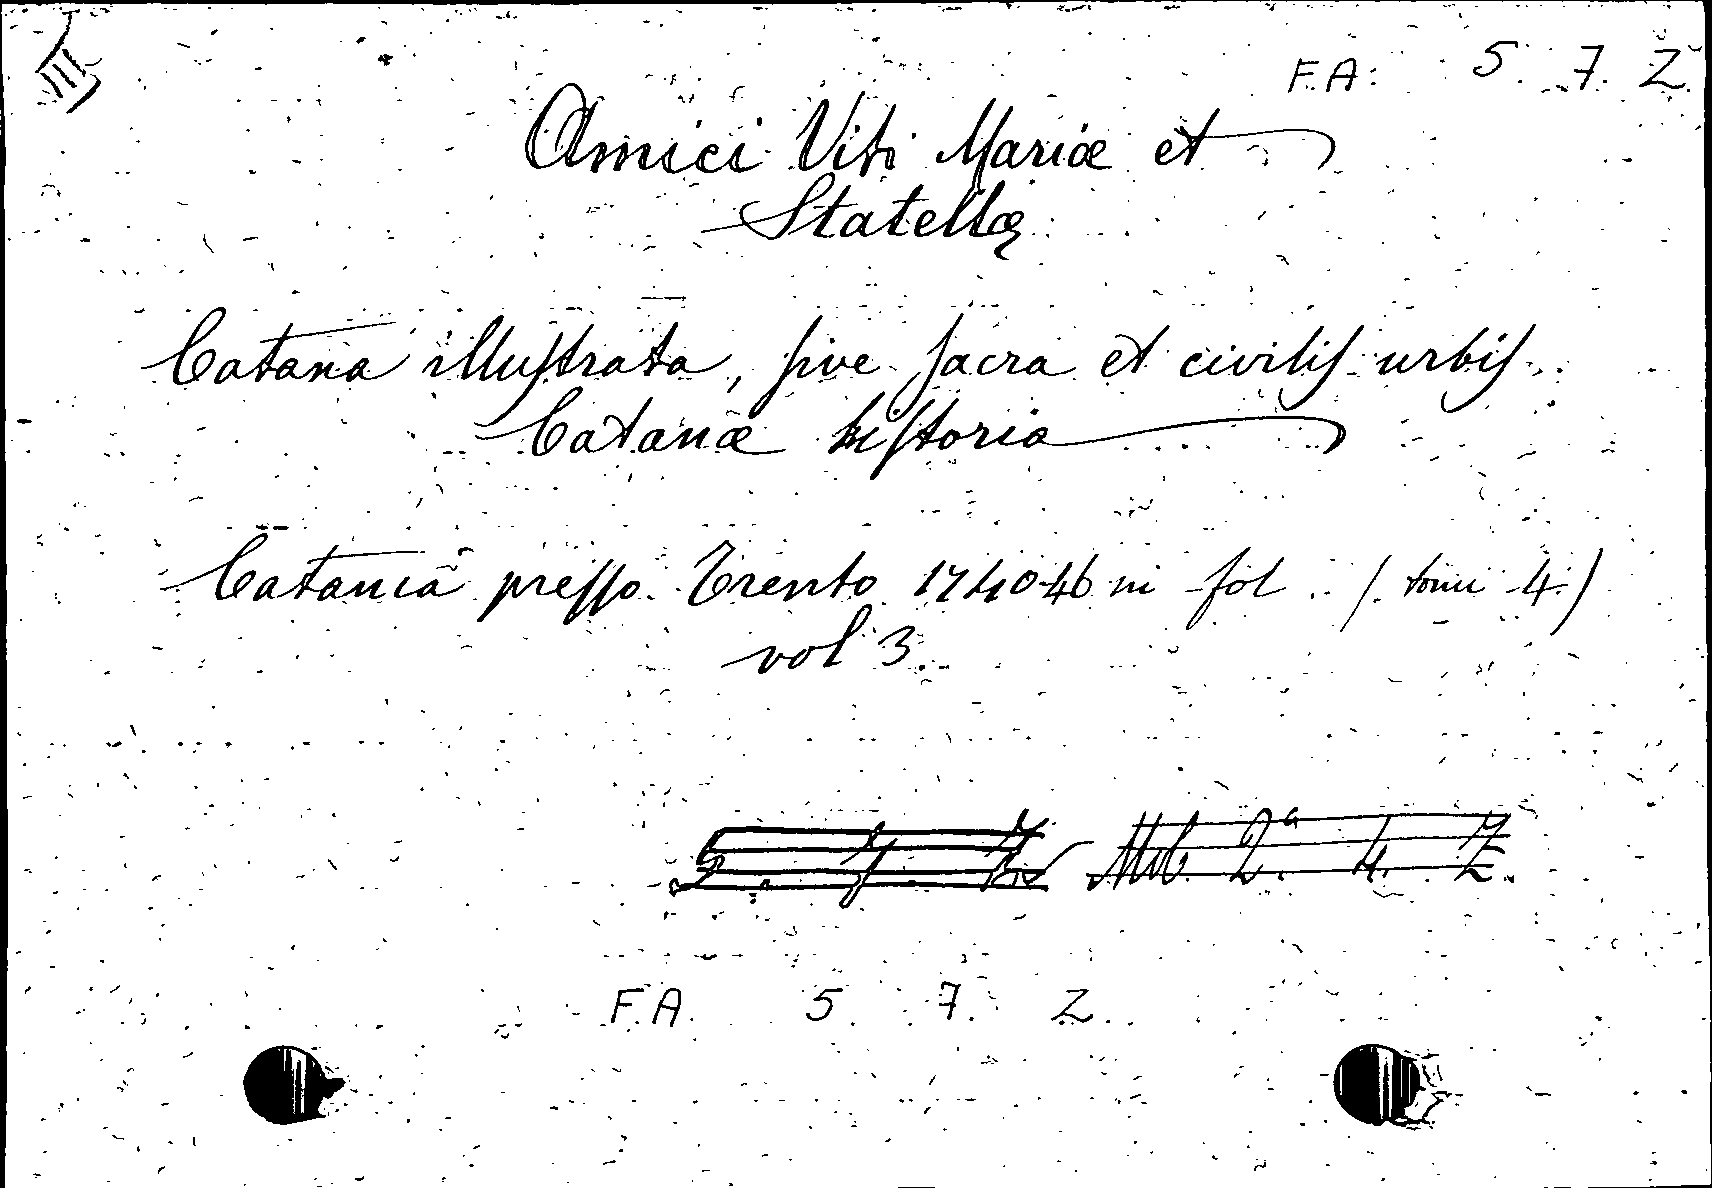 III
F.A. 5. 7. Z.
Amici Viti Mariæ et
Statellæ
Catana illuſtrata, ſive ſacra et civiliſ urbiſ
Catanæ hiſtoria
Catania preſſo Trento 1740-46 in fol. (tomi 4.)
vol 3.
5. 7. Mob. 2ª 4. Z.
F.A. 5. 7. Z.